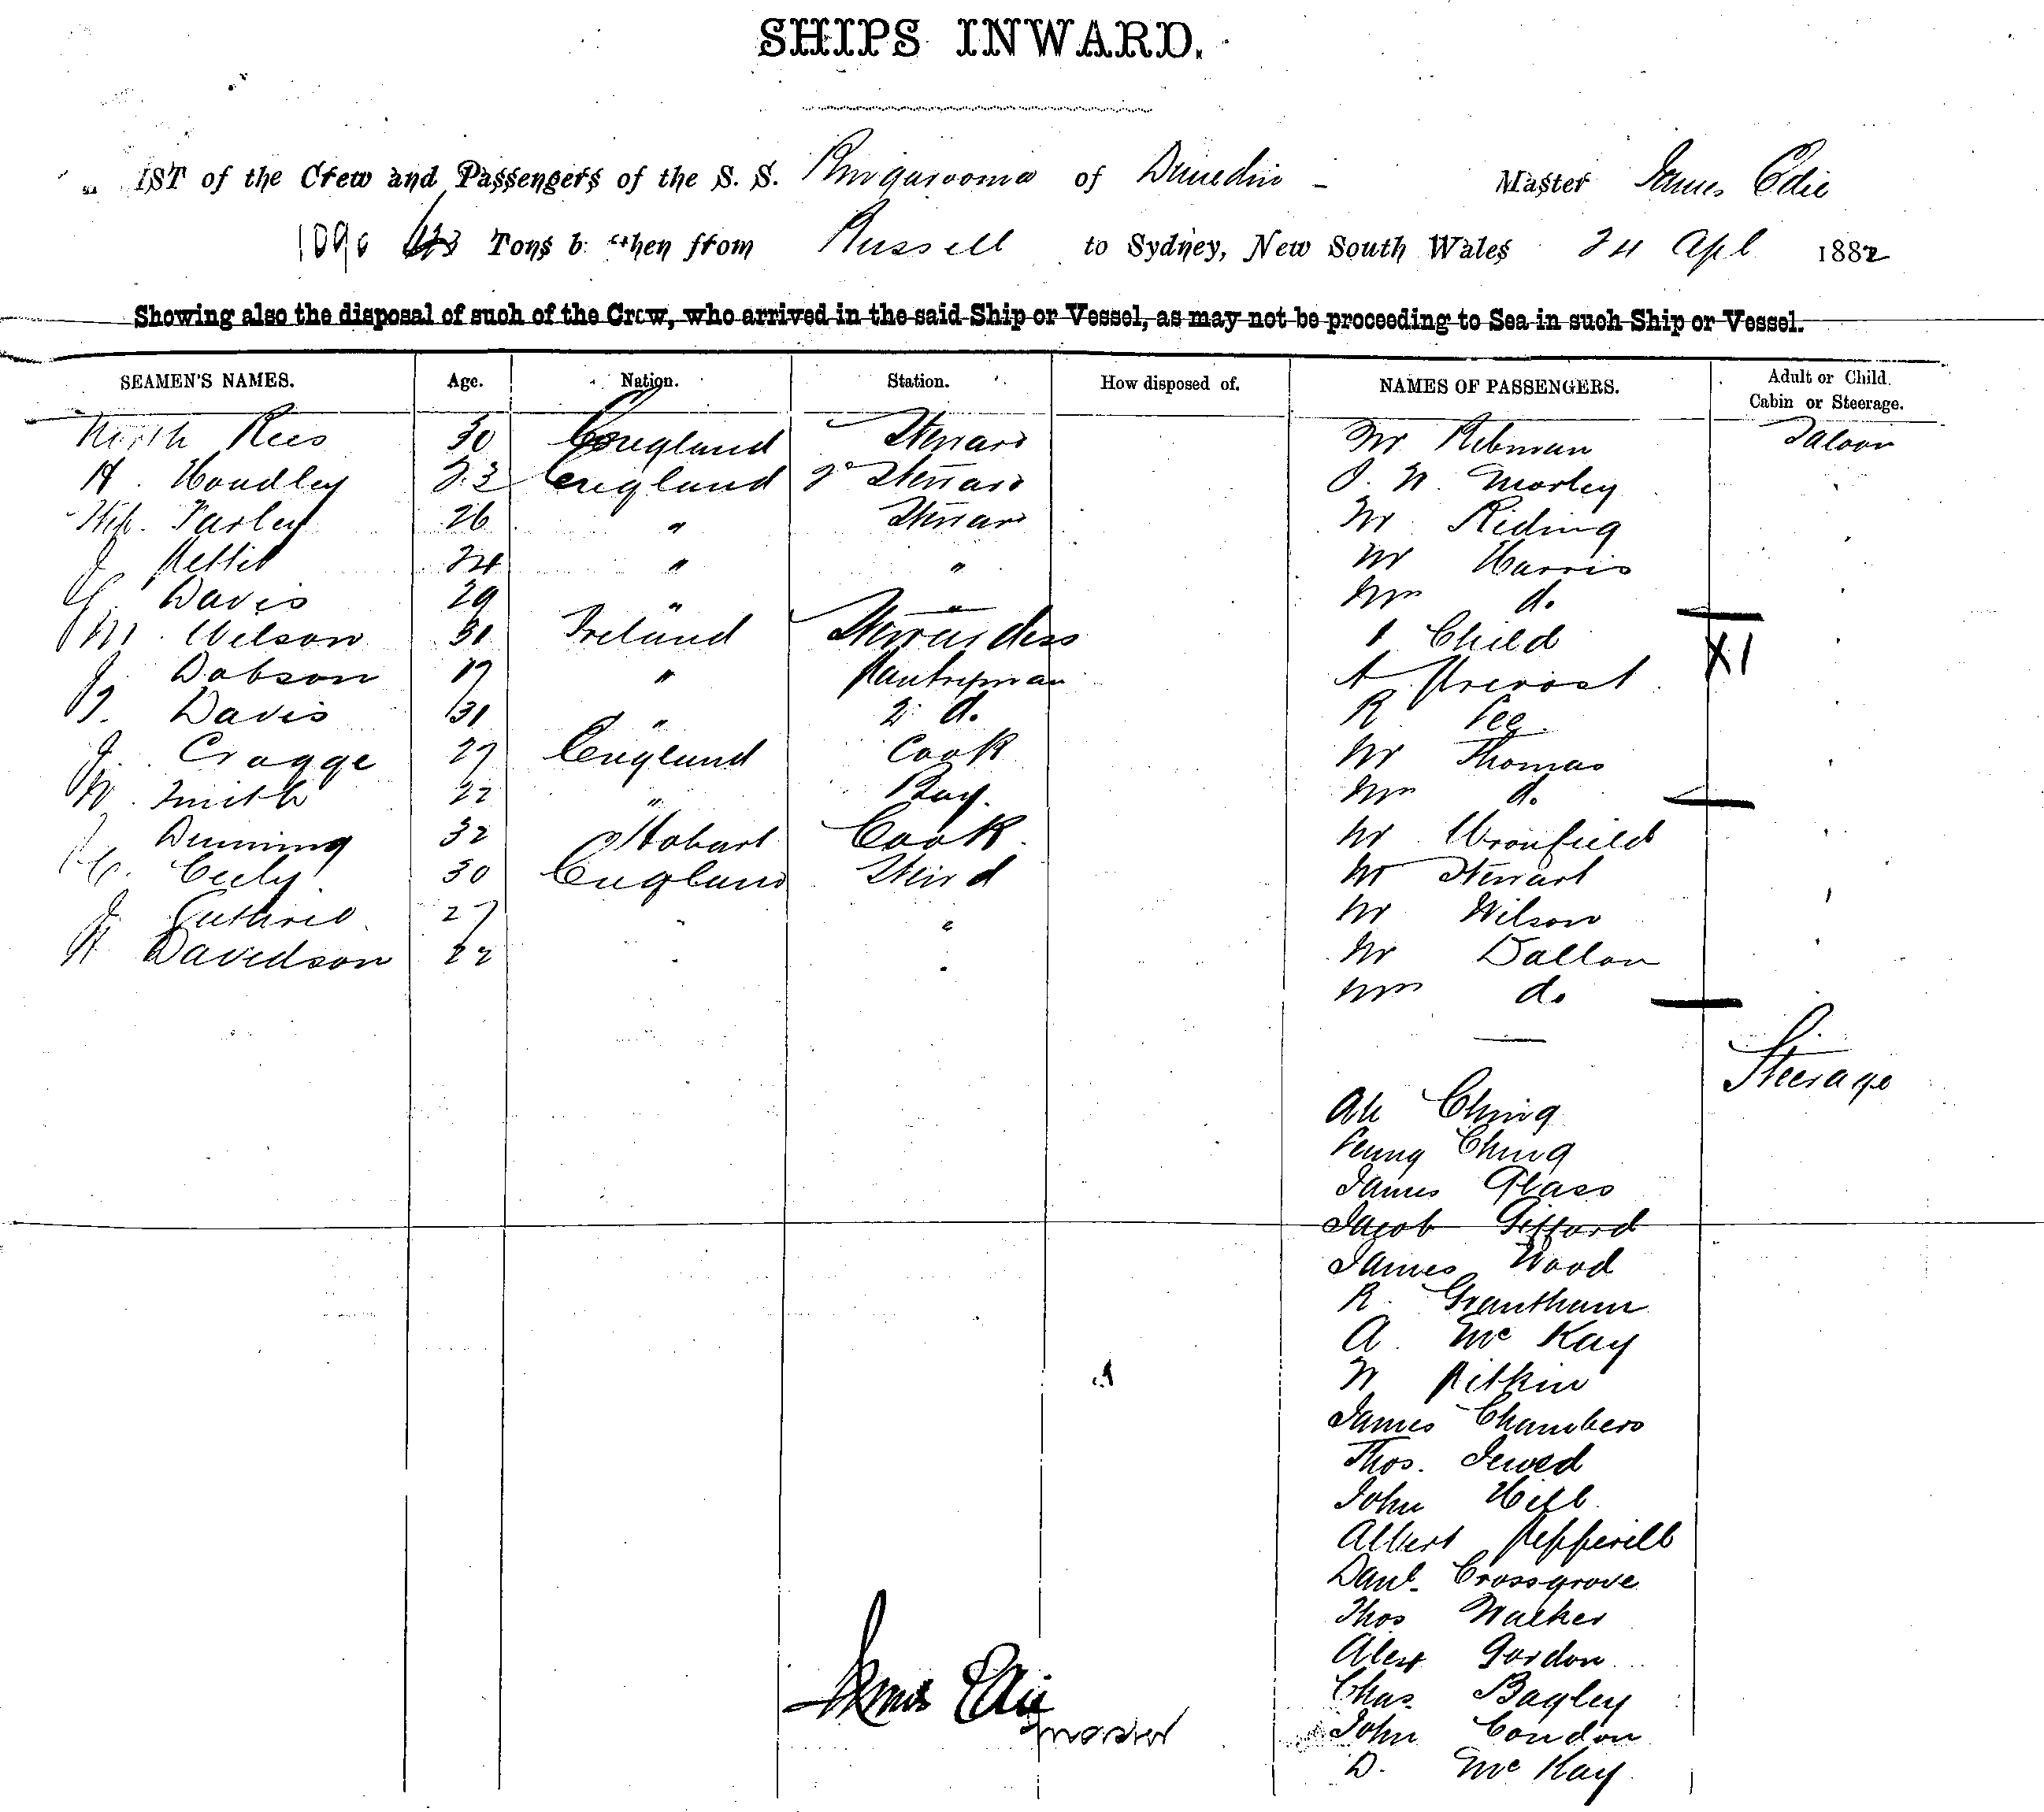 SHIPS INWARD.
IST of the Crew and Passengers of the S. S. Ringarooma of Dunedin - Master James Edie
1096 123 Tons b then from Russell to Sydney, New South Wales 24 Apl 1882
Showing also the disposal of such of the Crew, who arrived in the said Ship or Vessel, as may not be proceeding to Sea in such Ship or Vessel.
SEAMEN'S NAMES. Age. Nation. Station. How disposed of. NAMES OF PASSENGERS. Adult or Child. Cabin or Steerage.
North Rees 30 England Steward Mr Rebman Saloon
H. Hoadley 23 England 2d Steward J. W. Morley
Farley 26 " Steward Mr Riding
J Pettit 24 " " Mr Harris
G. Davis 29 " " Mrs do.
M. Wilson 31 Ireland Stewardess 1 Child X1
J. Dobson 17 " Pantryman A Prevost
T. Davis 31 " 2 do. R Lee
J. Cragge 27 England Cook Mr Thomas
W. Smith 22 " Mrs do.
Dunning 32 Hobart Cook Mr Cronfield
C. Cuely 30 England Stewd Mr Stewart
J Guthrie 27 " " Mr Wilson
H Davidson 22 " " Mr Dallon
Mrs do.
Steerage
Ah Ching
Ching
James Glass
Jacob Gifford
James Wood
R. Grantham
A. McKay
W Aitkin
James Chambers
Thos. Sewed
John Hill
Albert Pepperill
Danl. Crossgrove
Thos Walker
Alex Gordon
Chas. Bagley
John Condon
D. McKay
James Edie
Master